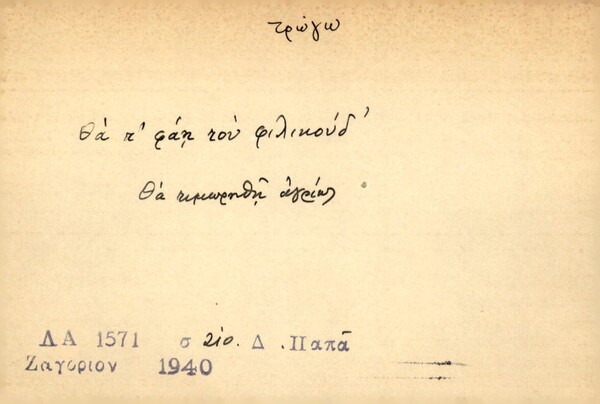 τρώγω
θά τ' φάῃ τού φιλικούδ'
θά τιμωρηθῇ ἀγρίως
ΛΑ 1571 σ 210. Δ. Παπᾶ
Ζαγοριον 1940